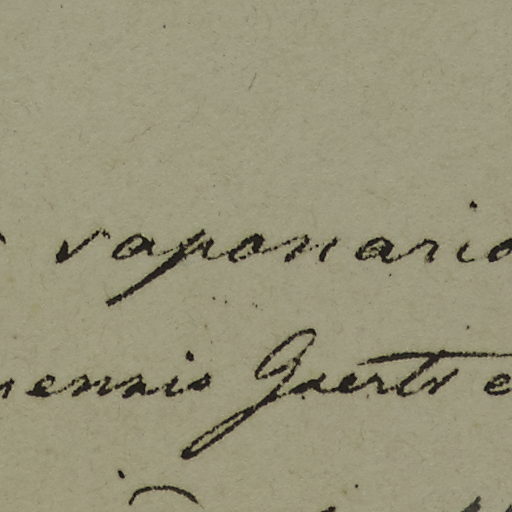 vaponario
nensis Gaertn e